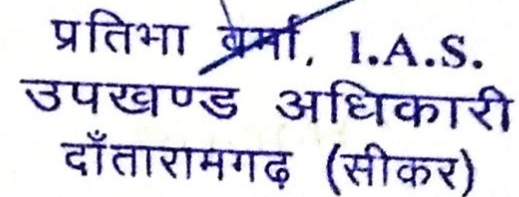 प्रतिभा वर्मा, I.A.S.
उपखण्ड अधिकारी
दाँतारामगढ़ (सीकर)